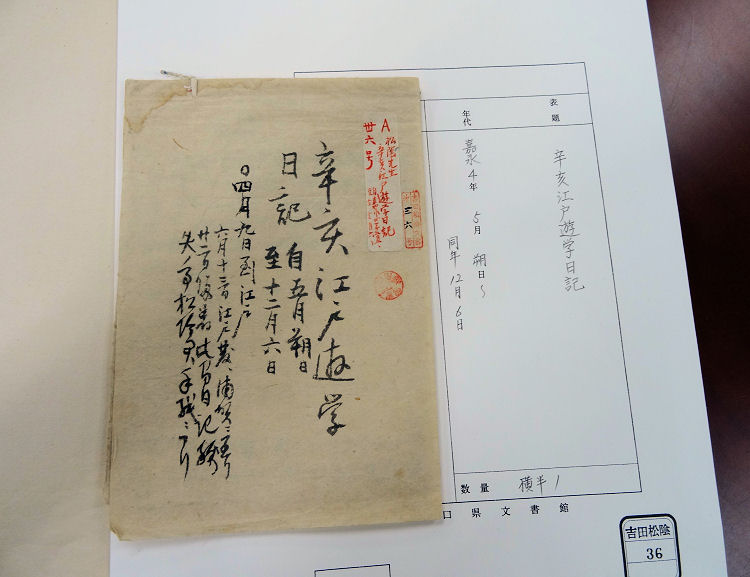 表題
辛亥江戸遊学日記
年代
嘉永4年 5月 朔日～
同年 12月 6日
数量 横半1
口県文書館
吉田松陰
36
A
松陰先生
辛亥江戸遊学日記
卅六号
三六
辛亥江戸遊学
日記 自五月朔日
至十二月六日
四月九日到江戸
六月十三日江戸発、浦賀